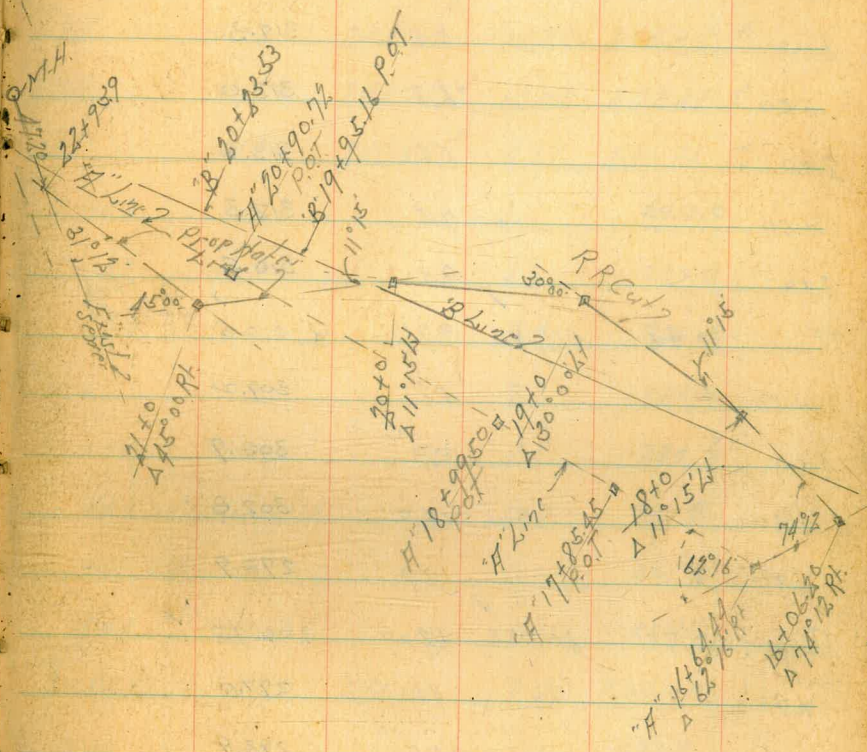 M.H.
47.20
22+93.9
"A" Line
31°12'
Exist
Sewer
"B" 20+23.53
"A" 20+90.72
P.O.T.
"B" 19+95.16 P.O.T
Prop
Line
45°00'
21+0
Δ 45°00' Rt.
11°15'
20+0
Δ 11°15' Lt
B Line
30°00'
R R Cut
11°15'
19+0
Δ 30°00' Lt
"A" 18+99.50
P.O.T
"A" Line
"A" 17+85.45
P.O.T
18+0
Δ 11°15' Lt
62°16'
74°12'
"A" 16+64.44
Δ 62°16' Rt
16+06.20
Δ 74°12' Rt.